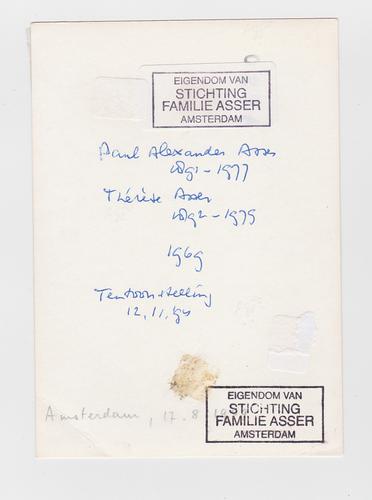 EIGENDOM VAN
STICHTING
FAMILIE ASSER
AMSTERDAM
Paul Alexander Asser
1891-1977
Thérèse Asser
1892-1979
1969
Tentoonstelling
12.11.
Amsterdam, 17.8.
EIGENDOM VAN
STICHTING
FAMILIE ASSER
AMSTERDAM